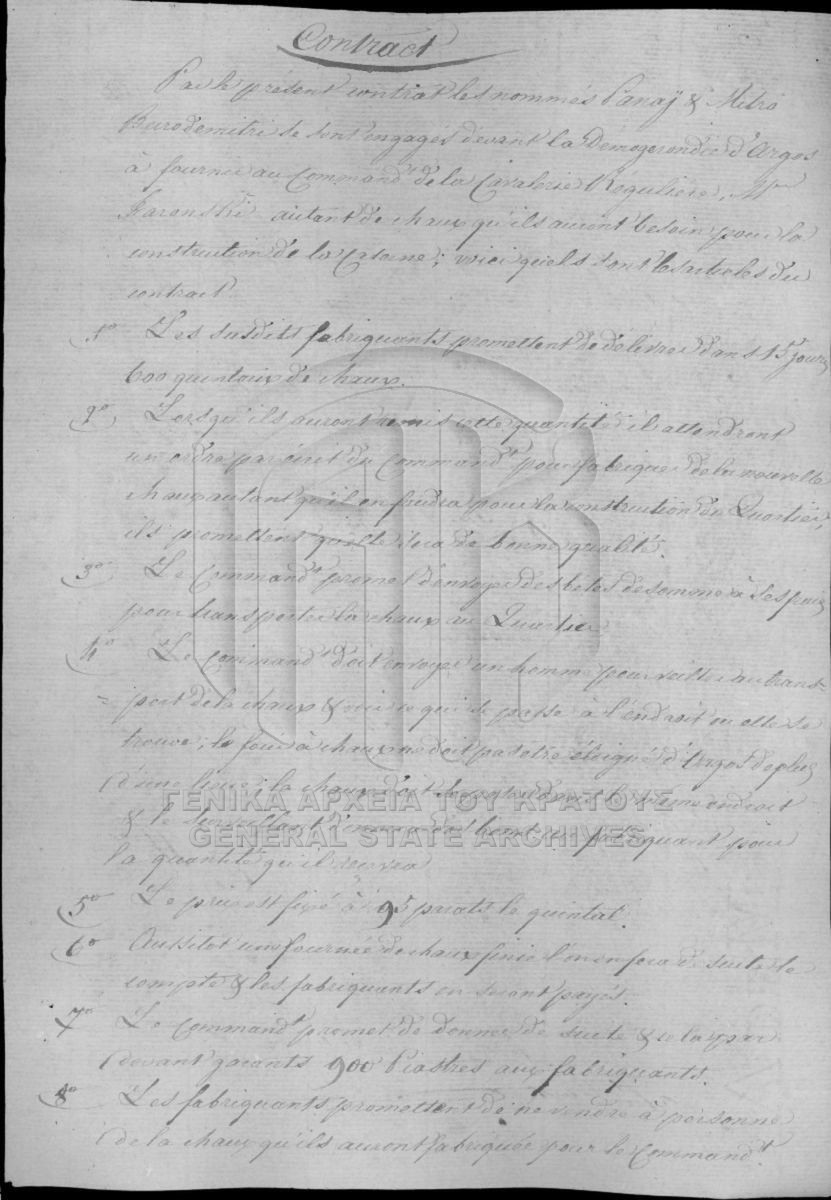 Contract
Par le présent contrat les nommés Panaÿ & Mitro
se sont engagés devant la Démogerondie d'Argos
à fournir au Command.t de la Cavalerie Régulière, M.r
autant de chaux qu'ils auront besoin pour la
construction de la Caserne; voici quels sont les articles du
contract
1.o Les susdits fabriquants promettent de délivrer dans 15 jours
600 quintoux de chaux.
2.o Lorsqu'ils auront remis cette quantité il attendront
un ordre par écrit du Command.t pour fabriquer de la nouvelle
chaux autant qu'il en faudra pour la construction du Quartier,
ils promettent qu'elle sera de bonne qualité.
3.o Le Command.t promet d'envoyer des betes de somme à ses frais
pour transporter la chaux au Quartier
4.o Le Command.t doit envoyer un homme pour veiller au trans-
= port de la chaux & voir ce qui se passe à l'endroit ou elle se
trouve; le four à chaux ne doit pas être éloigné d'Argos de plus
d'une lieue; la chaux doit même endroit
ΓΕΝΙΚΑ ΑΡΧΕΙΑ ΤΟΥ ΚΡΑΤΟΥΣ
GENERAL STATE ARCHIVES
& le surveillant fabriquant pour
la quantité qu'il recevra
5.o Le prix est fixé à 95 parats le quintal.
6.o Aussitot une fournée de chaux finie l'on en fera de suite le
compte & les fabriquants en seront payés.
7.o Le Command.t promet de donner de suite & cela par
devant garants 900 Piastres aux fabriquants.
8.o Les fabriquants promettent de ne vendre à personne
de la chaux qu'ils auront fabriquée pour le Command.t